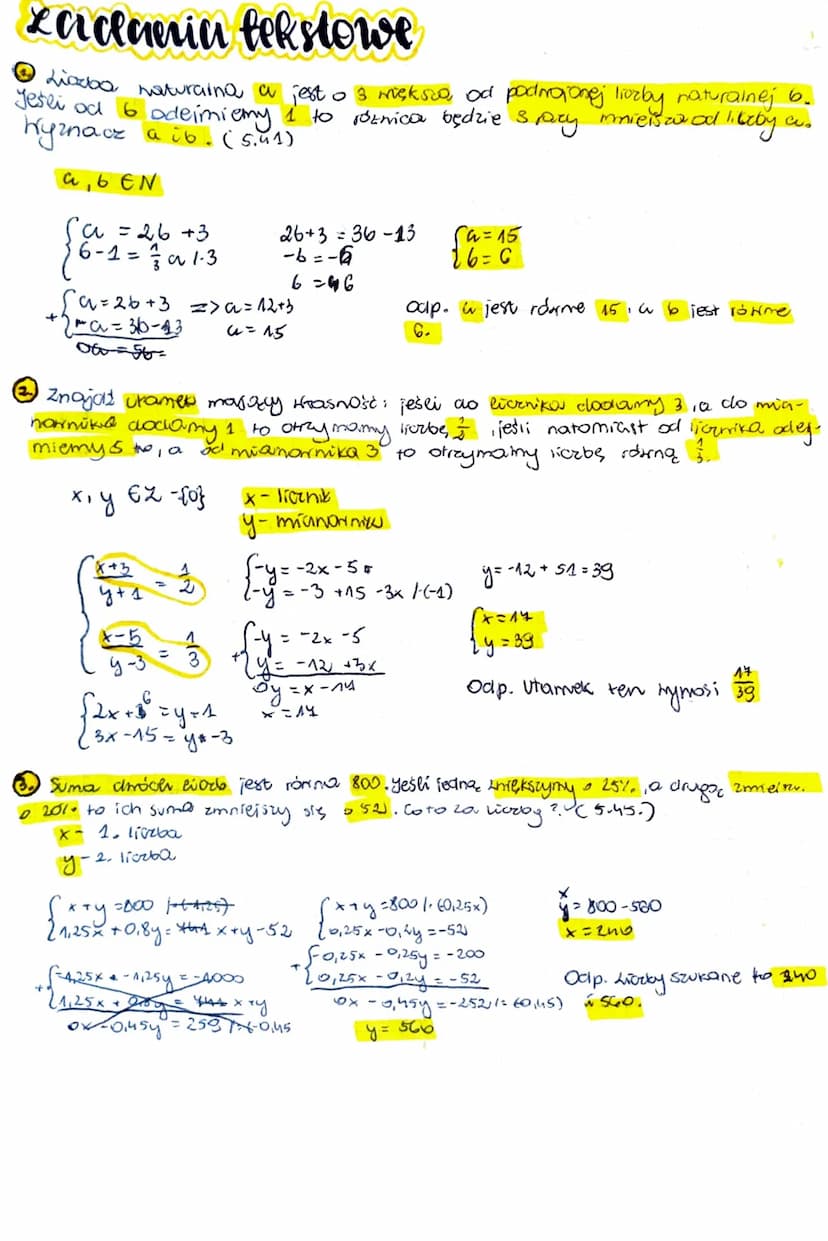 zadania tekstowe
1. Liczba naturalna a jest o 3 większa od podwojonej liczby naturalnej b.
Jeśli od b odejmiemy 1 to różnica będzie 3 razy mniejsza od liczby a.
Wyznacz a i b. (5.41)
a, b ∈ N
a = 2b + 3
b - 1 = 1/3 a /·3
2b+3 = 3b - 3
-b = -6
b = 6
a = 15
b = 6
+ a = 2b + 3 => a = 12+3
- a = 3b - 3 a = 15
0a = 5b
Odp. a jest równe 15, a b jest równe
6.
2. Znajdź ułamek mający własność: jeśli do licznika dodamy 3, a do mia-
nownika dodamy 1 to otrzymamy liczbę 1/2, jeśli natomiast od licznika odej-
miemy 5 to, a od mianownika 3 to otrzymamy liczbę równą 1/3.
x, y ∈ Z -{0}
x - licznik
y - mianownik
x+3 / y+1 = 1/2
x-5 / y-3 = 1/3
2x + 6 = y + 1
3x - 15 = y - 3
-y = -2x - 5
-y = -3 + 15 - 3x /·(-1)
+ -y = -2x - 5
y = -12 + 3x
0y = x - 17
x = 17
y = -12 + 51 = 39
x = 17
y = 39
Odp. Ułamek ten wynosi 17/39
3. Suma dwóch liczb jest równa 800. Jeśli jedną zwiększymy o 25%, a drugą zmniejsz.
o 20% to ich suma zmniejszy się o 52. Co to za liczby? (5.45.)
x - 1. liczba
y - 2. liczba
x + y = 800 /·(-1,25)
1,25x + 0,8y = x + y - 52
+ -1,25x + -1,25y = -1000
1,25x + 0,8y = x + y
0x - 0,45y = 259 /: -0,45
x + y = 800 /·(-0,25x)
0,25x - 0,2y = -52
+ -0,25x - 0,25y = -200
0,25x - 0,2y = -52
0x - 0,45y = -252 /: (-0,45)
y = 560
x
y = 800 - 560
x = 240
Odp. Liczby szukane to 240
i 560.